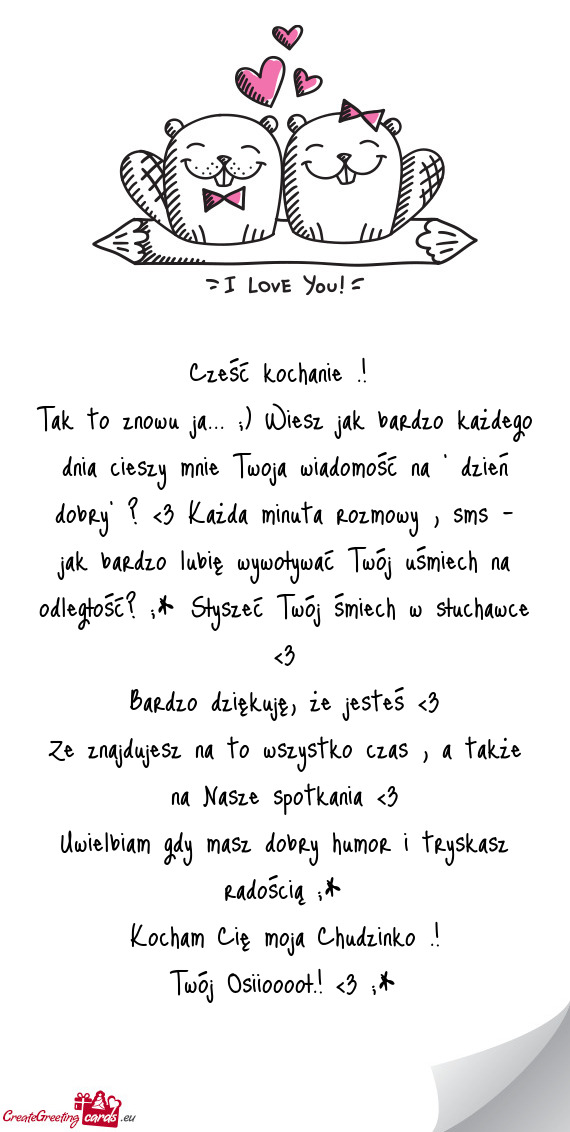 I LOVE YOU!
Cześć kochanie .!
Tak to znowu ja... ;) Wiesz jak bardzo każdego
dnia cieszy mnie Twoja wiadomość na " dzień
dobry" ? <3 Każda minuta rozmowy , sms -
jak bardzo lubię wywoływać Twój uśmiech na
odległość? ;* Słyszeć Twój śmiech w słuchawce
<3
Bardzo dziękuję, że jesteś <3
Ze znajdujesz na to wszystko czas , a także
na Nasze spotkania <3
Uwielbiam gdy masz dobry humor i tryskasz
radością ;*
Kocham Cię moja Chudzinko .!
Twój Osiioooot.! <3 ;*
CreateGreeting cards .eu